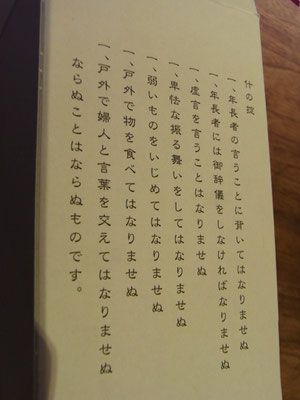 什の掟
一、年長者の言うことに背いてはなりませぬ
一、年長者には御辞儀をしなければなりませぬ
一、虚言を言うことはなりませぬ
一、卑怯な振る舞いをしてはなりませぬ
一、弱いものをいじめてはなりませぬ
一、戸外で物を食べてはなりませぬ
一、戸外で婦人と言葉を交えてはなりませぬ
ならぬことはならぬものです。